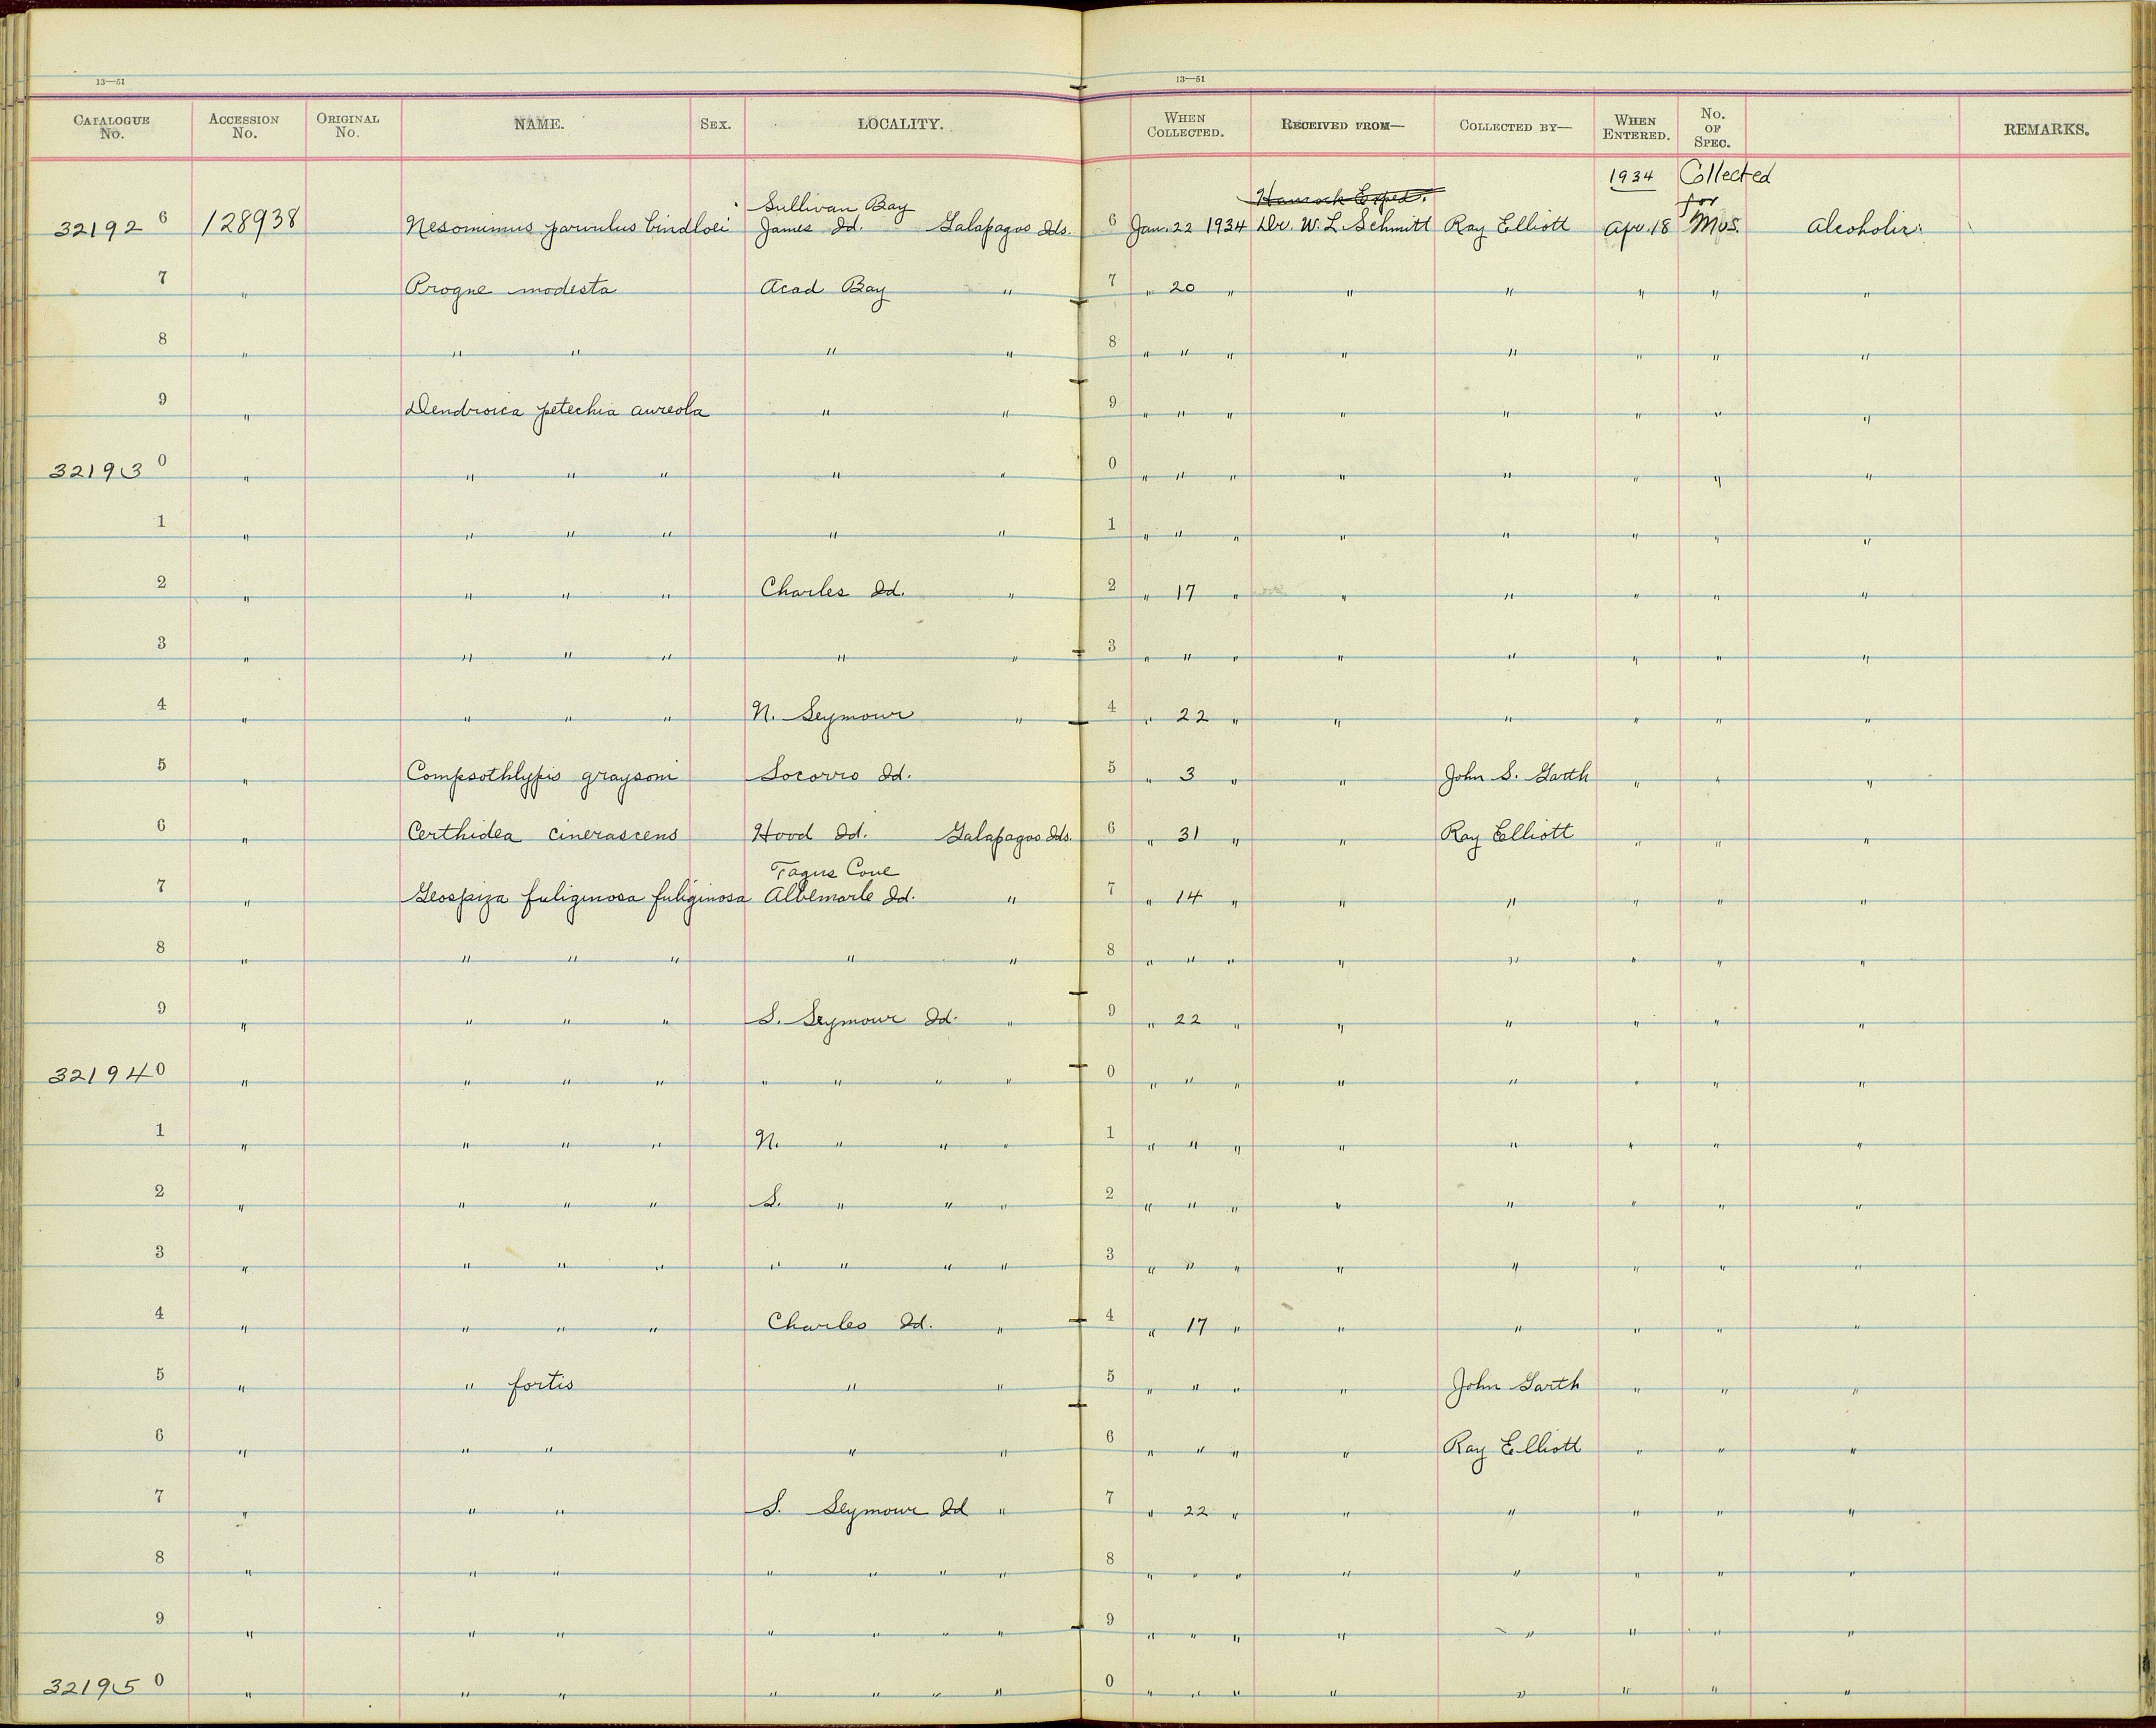 13—51 13—51
CATALOGUE No. ACCESSION No. ORIGINAL No. NAME. SEX. LOCALITY. WHEN COLLECTED. RECEIVED FROM— COLLECTED BY— WHEN ENTERED. No. OF SPEC. REMARKS.
1934 Collected
Sullivan Bay Hancock Exped. for
32192 6 128938 Nesomimus parvulus bindloei James Id. Galapagos Ids. 6 Jan. 22 1934 Dr. W. L. Schmitt Ray Elliott Apr. 18 Mus. Alcoholic
7 " Progne modesta Acad Bay " 7 " 20 " " " " " "
8 " " " " " 8 " " " " " " " "
9 " Dendroica petechia aureola " " 9 " " " " " " " "
32193 0 " " " " " " 0 " " " " " " " "
1 " " " " " " 1 " " " " " " " "
2 " " " " Charles Id. " 2 " 17 " " " " " "
3 " " " " " " 3 " " " " " " " "
4 " " " " N. Seymour " 4 " 22 " " " " " "
5 " Compsothlypis graysoni Socorro Id. 5 " 3 " " John S. Garth " " "
6 " Certhidea cinerascens Hood Id. Galapagos Ids. 6 " 31 " " Ray Elliott " " "
Tagus Cove
7 " Geospiza fuliginosa fuliginosa Albemarle Id. " 7 " 14 " " " " " "
8 " " " " " " 8 " " " " " " " "
9 " " " " S. Seymour Id. " 9 " 22 " " " " " "
32194 0 " " " " " " " " 0 " " " " " " " "
1 " " " " N. " " " 1 " " " " " " " "
2 " " " " S. " " " 2 " " " " " " " "
3 " " " " " " " " 3 " " " " " " " "
4 " " " " Charles Id. " 4 " 17 " " " " " "
5 " " fortis " " 5 " " " " John Garth " " "
6 " " " " " 6 " " " " Ray Elliott " " "
7 " " " S. Seymour Id " 7 " 22 " " " " " "
8 " " " " " " " 8 " " " " " " " "
9 " " " " " " " 9 " " " " " " " "
32195 0 " " " " " " " 0 " " " " " " " "